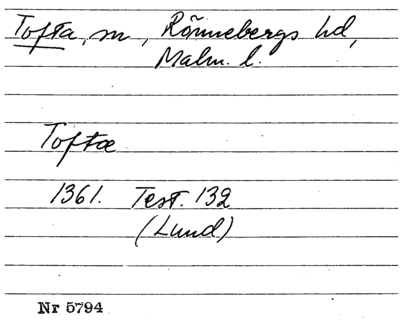 Tofta, sn, Rönnebergs hd,
Malm. l.
Toftæ
1361. Test. 132
(Lund)
Nr 5794